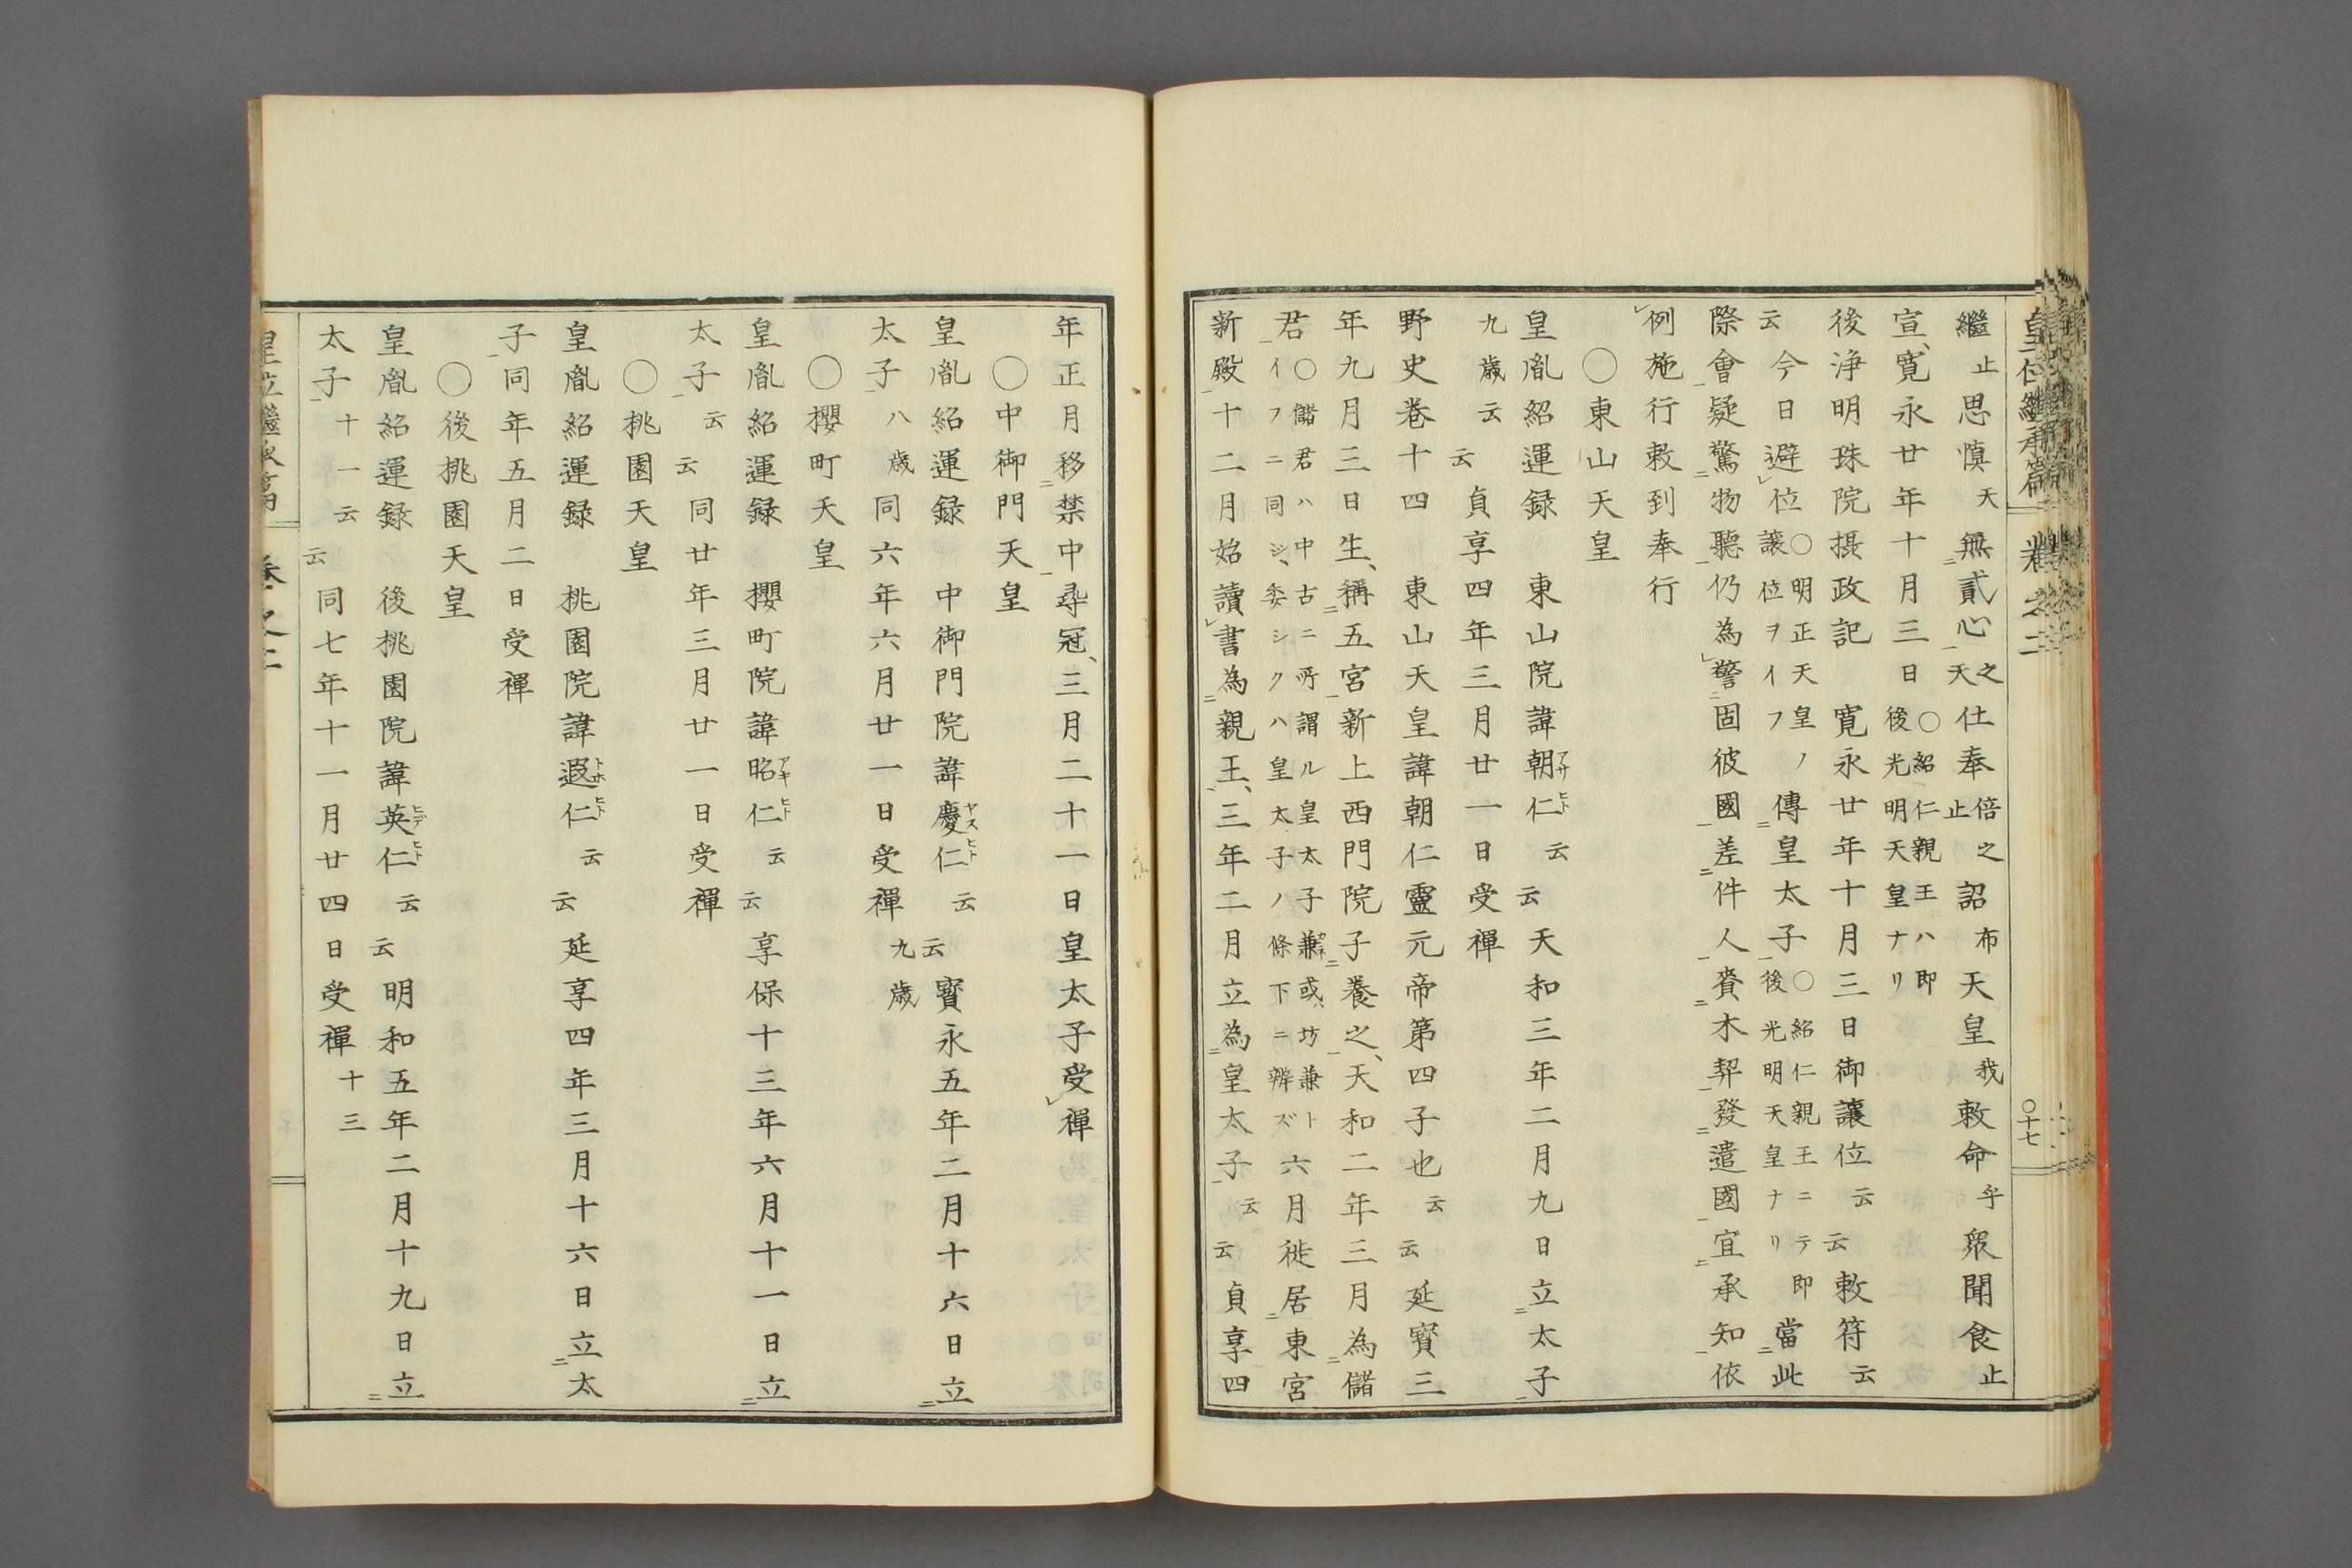 皇位繼承篇 卷之二 ○十七
繼止思慎天無貳心之天仕奉倍之止詔布天皇我敕命乎衆聞食止
宣、寛永廿年十月三日○紹仁親王ハ即後光明天皇ナリ
後浄明珠院摂政記 寛永廿年十月三日御讓位云云敕符云
云今日避位○明正天皇ノ讓位ヲイフ傳皇太子○紹仁親王ニテ即後光明天皇ナリ當此
際會疑驚物聽仍為警固彼國差件人賚木契發遣國宜承知依
例施行敕到奉行
○東山天皇
皇胤紹運録 東山院諱朝仁アサヒト云云天和三年二月九日立太子
九歳云云貞享四年三月廿一日受禪
野史卷十四 東山天皇諱朝仁靈元帝第四子也云云延寳三
年九月三日生、稱五宮新上西門院子養之、天和二年三月為儲
君○儲君ハ中古ニ所謂ル皇太子兼或、坊兼トイフニ同シ、委シクハ皇太子ノ條下ニ辨ズ六月徙居東宮
新殿十二月始讀書為親王、三年二月立為皇太子云云貞享四
年正月移禁中尋冠、三月二十一日皇太子受禪
○中御門天皇
皇胤紹運録 中御門院諱慶仁ヤスヒト云云九歳寳永五年二月十六日立
太子八歳同六年六月廿一日受禪
○櫻町天皇
皇胤紹運録 櫻町院諱昭仁アキヒト云云享保十三年六月十一日立
太子云云同廿年三月廿一日受禪
○桃園天皇
皇胤紹運録 桃園院諱遐仁トホヒト云云延享四年三月十六日立太
子同年五月二日受禪
○後桃園天皇
皇胤紹運録 後桃園院諱英仁ヒデヒト云云明和五年二月十九日立
太子十一云云同七年十一月廿四日受禪十三